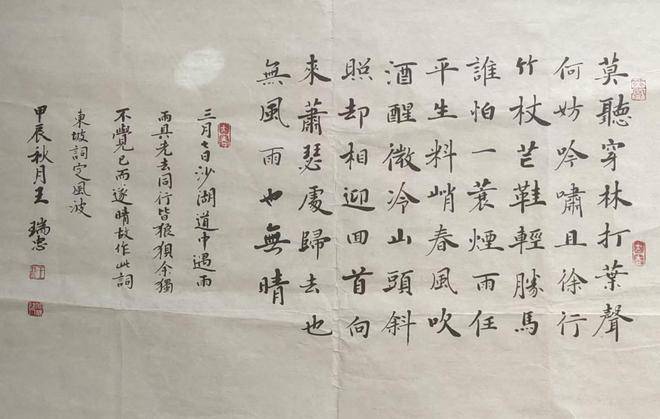 莫聽穿林打葉聲
何妨吟嘯且徐行
竹杖芒鞋輕勝馬
誰怕一蓑煙雨任
平生料峭春風吹
酒醒微冷山頭斜
照却相迎回首向
來蕭瑟處歸去也
無風雨也無晴
三月七日沙湖道中遇雨
雨具先去同行皆狼狽余獨
不覺已而遂晴故作此詞
東坡詞定風波
甲辰秋月王瑞忠